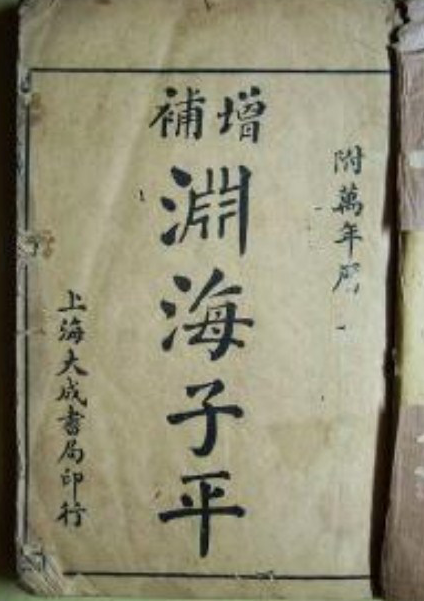 附萬年曆
增補
淵海子平
上海大成書局印行